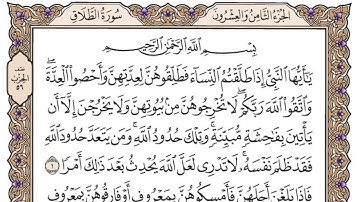 الجزء الثامن والعشرون
سورة الطلاق
بِسْمِ اللَّهِ الرَّحْمَٰنِ الرَّحِيمِ
يَٰٓأَيُّهَا ٱلنَّبِيُّ إِذَا طَلَّقْتُمُ ٱلنِّسَآءَ فَطَلِّقُوهُنَّ لِعِدَّتِهِنَّ وَأَحْصُوا۟ ٱلْعِدَّةَ ۖ
وَٱتَّقُوا۟ ٱللَّهَ رَبَّكُمْ ۖ لَا تُخْرِجُوهُنَّ مِنۢ بُيُوتِهِنَّ وَلَا يَخْرُجْنَ إِلَّآ أَن
يَأْتِينَ بِفَٰحِشَةٍ مُّبَيِّنَةٍ ۚ وَتِلْكَ حُدُودُ ٱللَّهِ ۚ وَمَن يَتَعَدَّ حُدُودَ ٱللَّهِ
فَقَدْ ظَلَمَ نَفْسَهُۥ ۚ لَا تَدْرِى لَعَلَّ ٱللَّهَ يُحْدِثُ بَعْدَ ذَٰلِكَ أَمْرًا ١
فَإِذَا بَلَغْنَ أَجَلَهُنَّ فَأَمْسِكُوهُنَّ بِمَعْرُوفٍ أَوْ فَارِقُوهُنَّ بِمَعْرُوفٍ
الحزب
٥٦